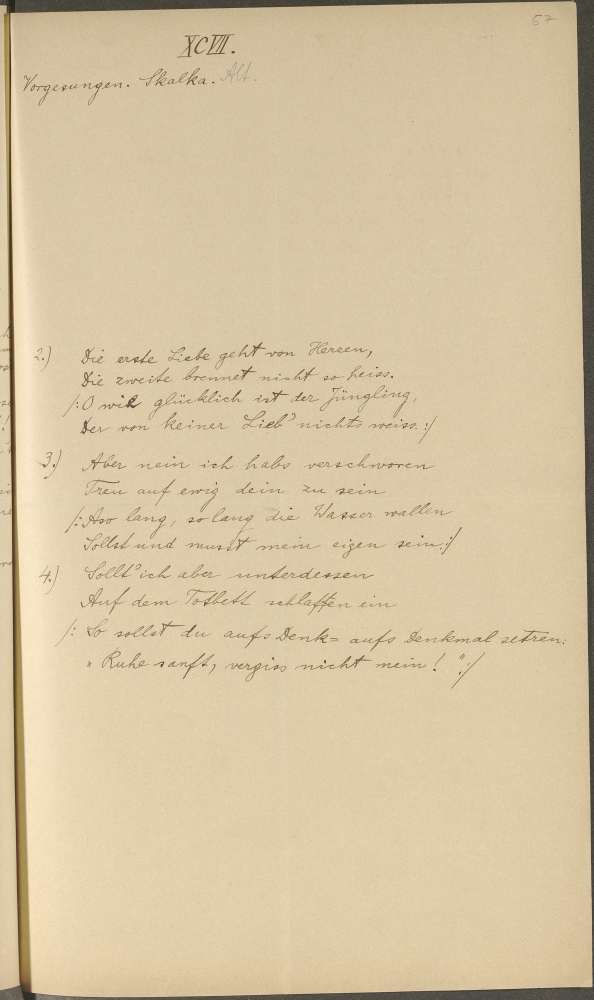 57
XCVII.
Vorgesungen. Skalka. Alt.
2.) Die erste Liebe geht von Herzen,
Die zweite brennet nicht so heiss.
/: O wie glücklich ist der Jüngling,
Der von keiner Lieb' nichts weiss. :/
3.) Aber nein ich habs verschworen
Treu auf ewig dein zu sein
/: Aso lang, so lang die Wasser wallen
Sollst und musst mein eigen sein :/
4.) Sollt' ich aber unterdessen
Auf dem Totbett schlaffen ein
/: So sollst du aufs Denk= aufs Denkmal setzen:
"Ruhe sanft, vergiss nicht mein! " :/